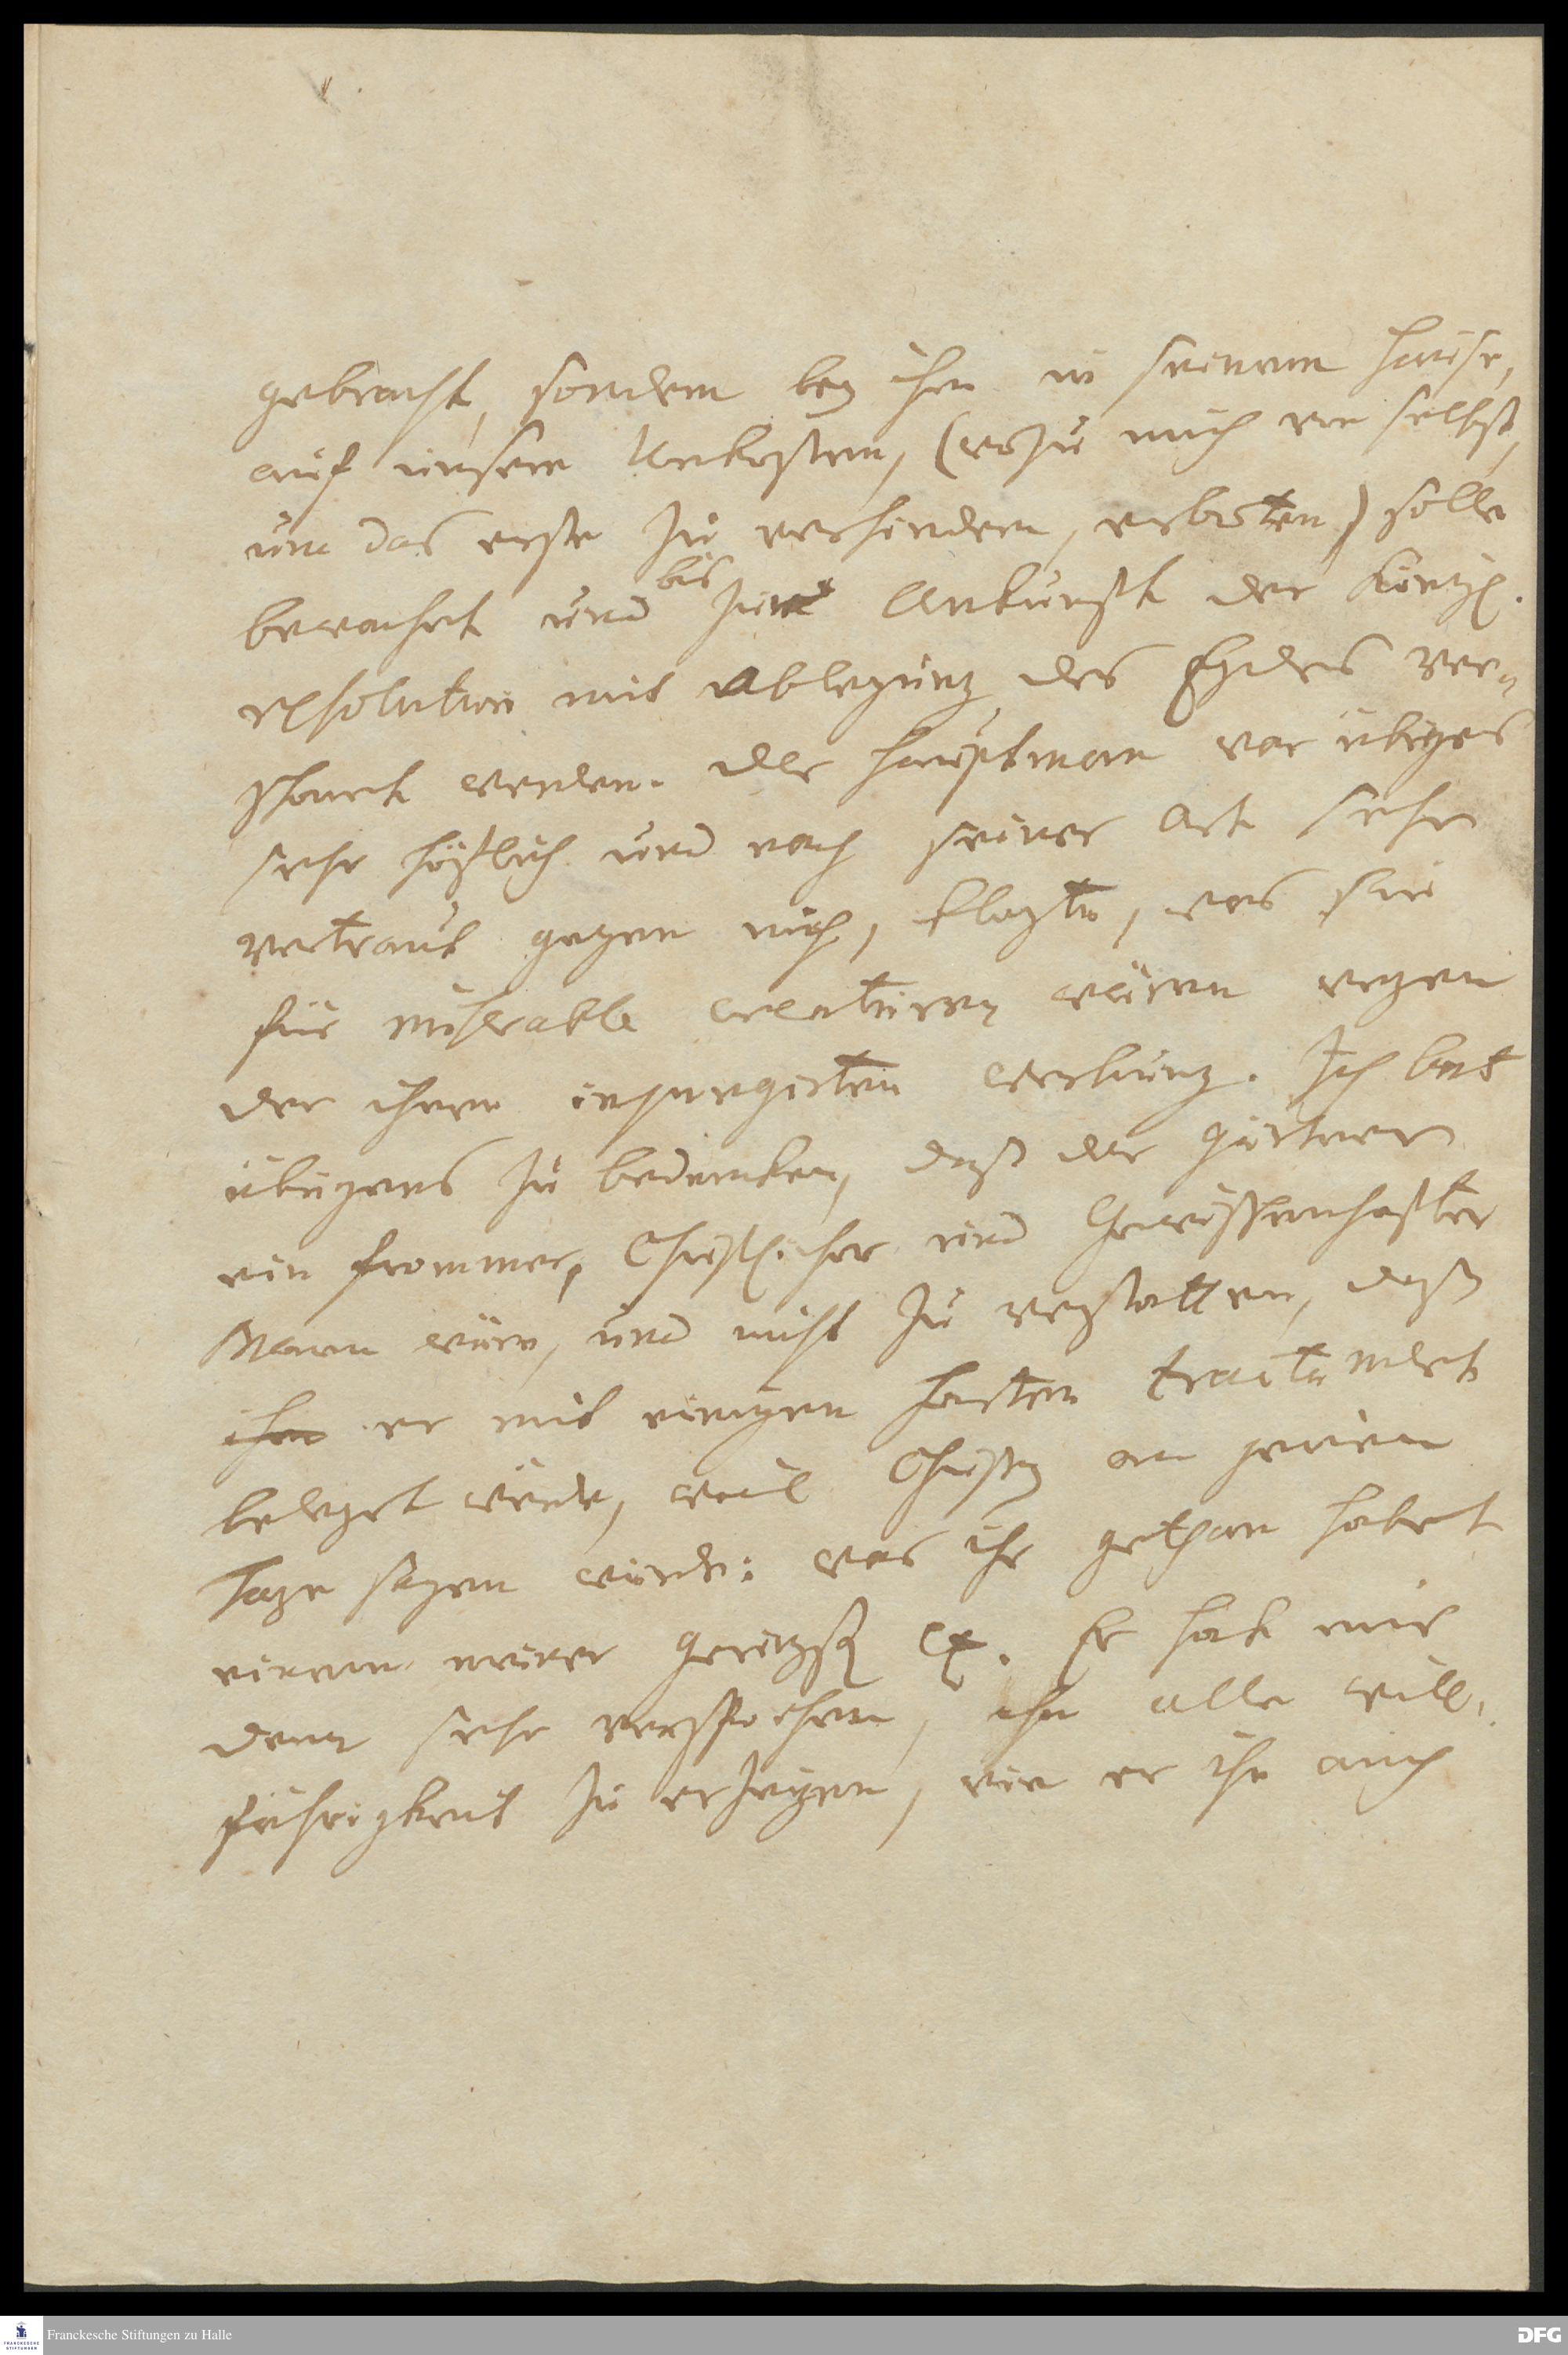 gebracht, sondern bey ihm in seinem Hause,
auf unsere Unkosten, (wozu mich von selbst,
um das erste zu verhindern, erboten) solle
bewahrt und bis zur Ankunft der Königl.
resolution mit Ablegung des Eydes ver-
schont werden. Der Hauptman war übriges
sehr höflich und nach seiner Art sehr
vertraut gegen mich, klagte, was sie
für miserable creaturen wären wegen
der ihnen injungirten Werbung. Ich bat
übrigens zu bedencken, daß der Gärtner
ein frommer, Christlicher und Gewissenhaffter
Mann wäre, und nicht zu verstatten, daß
ihm er mit einigen harten tractament
belegt würde, weil Christus an jenem
Tage sagen würde: was ihr gethan habet
einem meiner Geringsten etc. Er hat mir
denn sehr versprochen, ihm alle Will-
fährigkeit zu erzeigen, wie er ihn auch
Franckesche Stiftungen zu Halle
FRANCKESCHE STIFTUNGEN
DFG